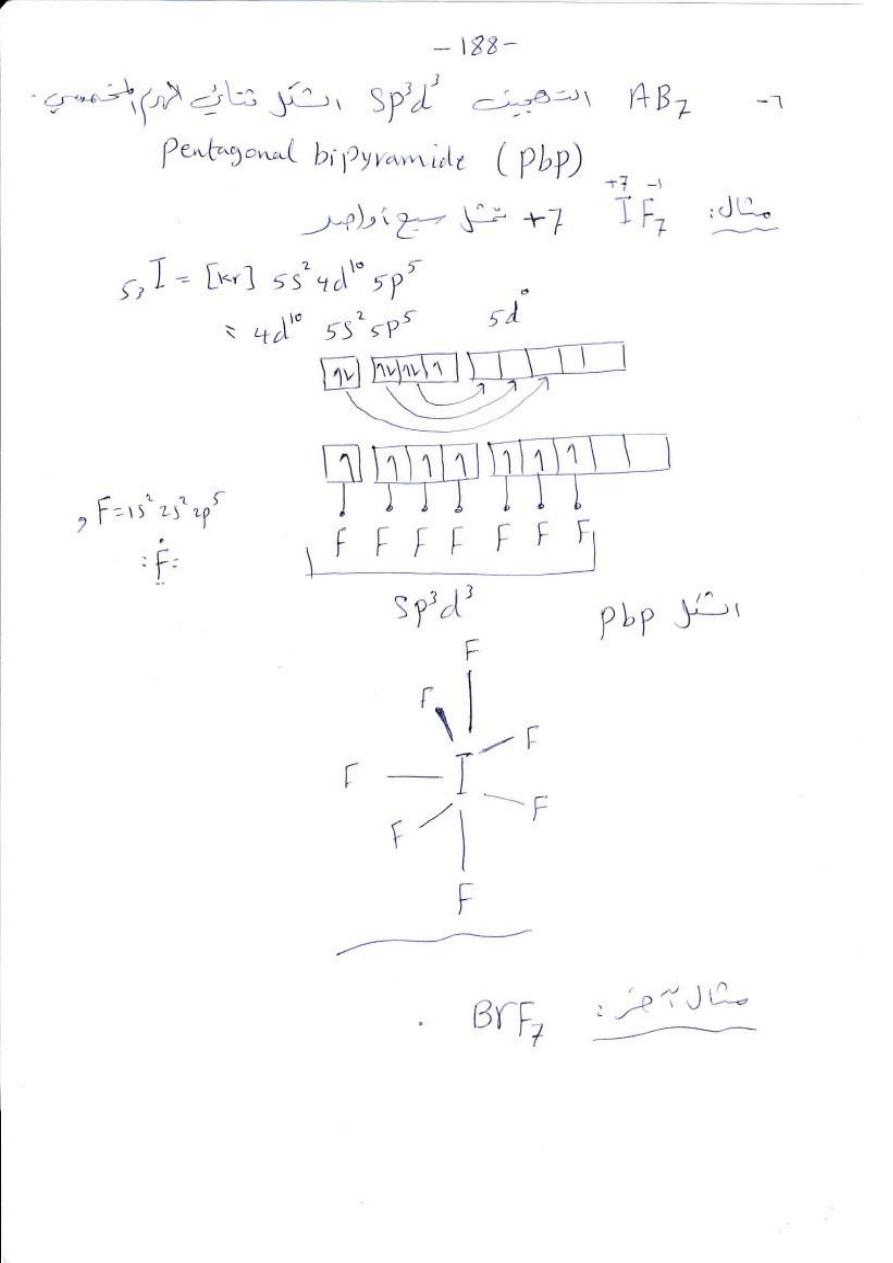 - 188 -
٦- AB₇ التهجين sp³d³ الشكل ثنائي الهرم المخمسي.
Pentagonal bipyramide (Pbp)
مثال: IF₇ +7 تمثل سبع أواصر
+7 -1
₅₃I = [Kr] 5s² 4d¹⁰ 5p⁵
= 4d¹⁰ 5s² 5p⁵ 5d⁰
₉F = 1s² 2s² 2p⁵
F F F F F F F
:F:
sp³d³
الشكل Pbp
F
F
F
F I
F
F
F
مثال آخر: BrF₇ .